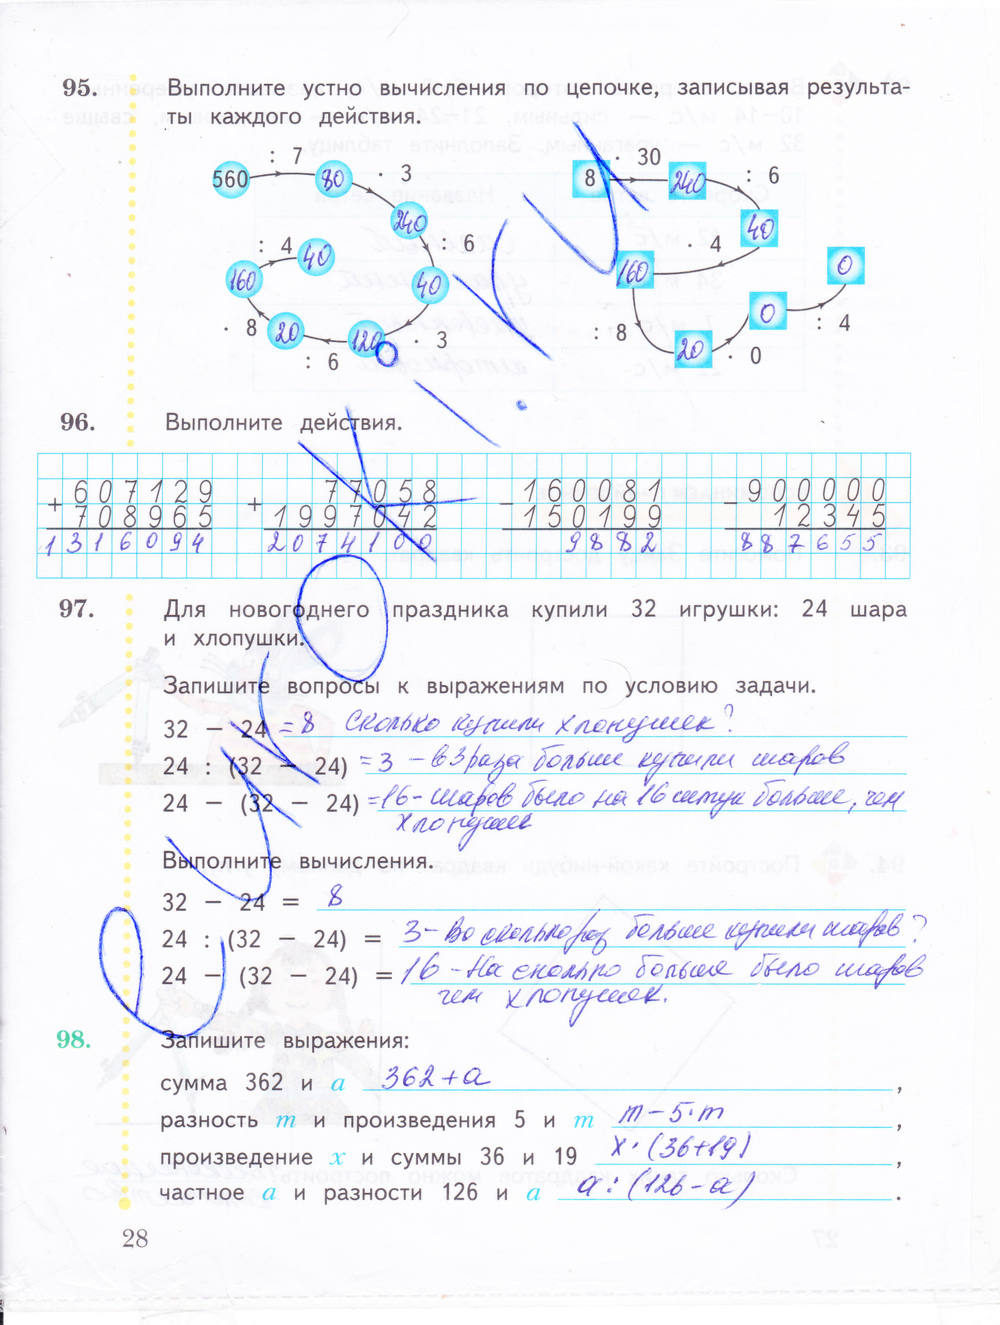 95. Выполните устно вычисления по цепочке, записывая результа-
ты каждого действия.
560 : 7 80 · 3 240 : 6 40 · 3 120 : 6 20 · 8 160 : 4 40
8 · 30 240 : 6 40 · 4 160 : 8 20 · 0 0 : 4 0
96. Выполните действия.
+ 607129 + 77058 - 160081 - 900000
708965 1997042 150199 12345
1316094 2074100 9882 887655
97. Для новогоднего праздника купили 32 игрушки: 24 шара
и хлопушки.
Запишите вопросы к выражениям по условию задачи.
32 − 24 = 8 Сколько купили хлопушек?
24 : (32 − 24) = 3 - в 3 раза больше купили шаров
24 − (32 − 24) = 16 - шаров было на 16 штук больше, чем
хлопушек
Выполните вычисления.
32 − 24 = 8
24 : (32 − 24) = 3 - Во сколько раз больше купили шаров?
24 − (32 − 24) = 16 - На сколько больше было шаров
чем хлопушек.
98. Запишите выражения:
сумма 362 и a 362 + a ,
разность m и произведения 5 и m m − 5 · m ,
произведение x и суммы 36 и 19 x · (36+19) ,
частное a и разности 126 и a a : (126 − a) .
28